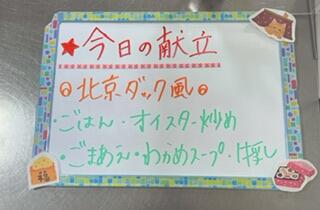 ★今日の献立
北京ダック風
・ごはん・オイスター炒め
・ごまあえ・わかめスープ・
福